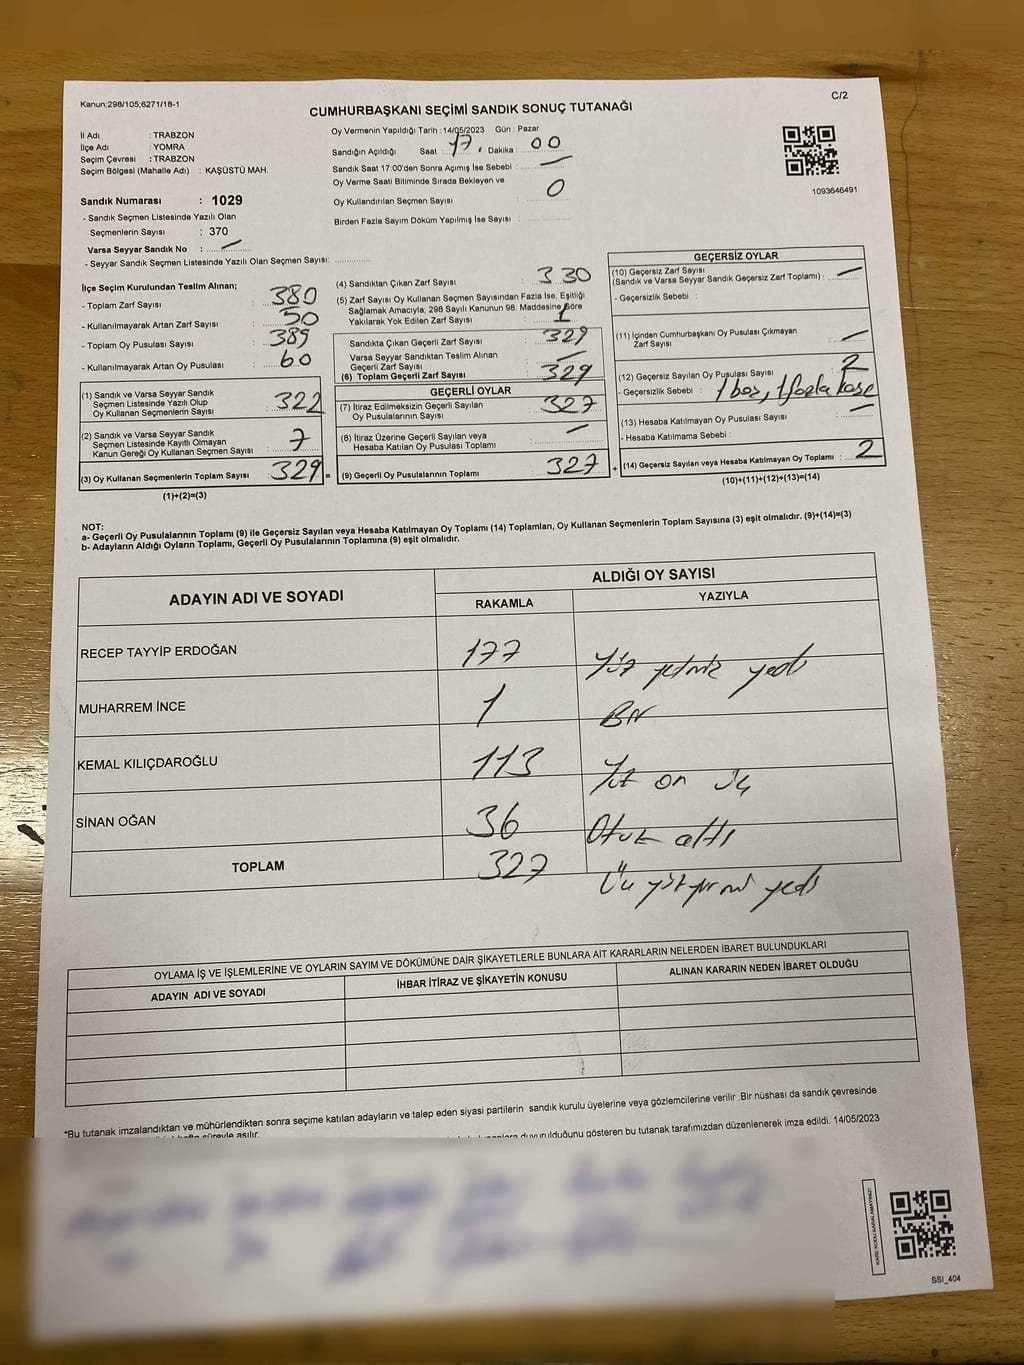 Kanun;298/105;6271/18-1
C/2
CUMHURBAŞKANI SEÇİMİ SANDIK SONUÇ TUTANAĞI
İl Adı : TRABZON
İlçe Adı : YOMRA
Seçim Çevresi : TRABZON
Seçim Bölgesi (Mahalle Adı) : KAŞÜSTÜ MAH.
Oy Vermenin Yapıldığı Tarih : 14/05/2023 Gün : Pazar
Sandığın Açıldığı Saat : 17 , Dakika : 00
Sandık Saat 17:00'den Sonra Açımış İse Sebebi : —
Oy Verme Saati Bitiminde Sırada Bekleyen ve
Oy Kullandırılan Seçmen Sayısı : 0
Birden Fazla Sayım Döküm Yapılmış İse Sayısı :
1093646491
Sandık Numarası : 1029
- Sandık Seçmen Listesinde Yazılı Olan
Seçmenlerin Sayısı : 370
Varsa Seyyar Sandık No : —
- Seyyar Sandık Seçmen Listesinde Yazılı Olan Seçmen Sayısı:
İlçe Seçim Kurulundan Teslim Alınan;
- Toplam Zarf Sayısı : 380
- Kullanılmayarak Artan Zarf Sayısı : 50
- Toplam Oy Pusulası Sayısı : 389
- Kullanılmayarak Artan Oy Pusulası : 60
(1) Sandık ve Varsa Seyyar Sandık
Seçmen Listesinde Yazılı Olup
Oy Kullanan Seçmenlerin Sayısı : 322
(2) Sandık ve Varsa Seyyar Sandık
Seçmen Listesinde Kayıtlı Olmayan
Kanun Gereği Oy Kullanan Seçmen Sayısı : 7
(3) Oy Kullanan Seçmenlerin Toplam Sayısı : 329 =
(1)+(2)=(3)
(4) Sandıktan Çıkan Zarf Sayısı : 330
(5) Zarf Sayısı Oy Kullanan Seçmen Sayısından Fazla İse, Eşitliği
Sağlamak Amacıyla; 298 Sayılı Kanunun 98. Maddesine Göre
Yakılarak Yok Edilen Zarf Sayısı : 1
Sandıkta Çıkan Geçerli Zarf Sayısı : 329
Varsa Seyyar Sandıktan Teslim Alınan
Geçerli Zarf Sayısı : —
(6) Toplam Geçerli Zarf Sayısı : 329
GEÇERLİ OYLAR
(7) İtiraz Edilmeksizin Geçerli Sayılan
Oy Pusulalarının Sayısı : 327
(8) İtiraz Üzerine Geçerli Sayılan veya
Hesaba Katılan Oy Pusulası Toplamı : —
(9) Geçerli Oy Pusulalarının Toplamı : 327 +
GEÇERSİZ OYLAR
(10) Geçersiz Zarf Sayısı
(Sandık ve Varsa Seyyar Sandık Geçersiz Zarf Toplamı) : —
- Geçersizlik Sebebi :
(11) İçinden Cumhurbaşkanı Oy Pusulası Çıkmayan
Zarf Sayısı : —
(12) Geçersiz Sayılan Oy Pusulası Sayısı : 2
- Geçersizlik Sebebi : 1 boş, 1 fazla kaşe
(13) Hesaba Katılmayan Oy Pusulası Sayısı : —
- Hesaba Katılmama Sebebi :
(14) Geçersiz Sayılan veya Hesaba Katılmayan Oy Toplamı : 2
(10)+(11)+(12)+(13)=(14)
NOT:
a- Geçerli Oy Pusulalarının Toplamı (9) ile Geçersiz Sayılan veya Hesaba Katılmayan Oy Toplamı (14) Toplamları, Oy Kullanan Seçmenlerin Toplam Sayısına (3) eşit olmalıdır. (9)+(14)=(3)
b- Adayların Aldığı Oyların Toplamı, Geçerli Oy Pusulalarının Toplamına (9) eşit olmalıdır.
ADAYIN ADI VE SOYADI
ALDIĞI OY SAYISI
RAKAMLA YAZIYLA
RECEP TAYYİP ERDOĞAN 177 Yüz yetmiş yedi
MUHARREM İNCE 1 Bir
KEMAL KILIÇDAROĞLU 113 Yüz on üç
SİNAN OĞAN 36 Otuz altı
TOPLAM 327 Üç yüz yirmi yedi
OYLAMA İŞ VE İŞLEMLERİNE VE OYLARIN SAYIM VE DÖKÜMÜNE DAİR ŞİKAYETLERLE BUNLARA AİT KARARLARIN NELERDEN İBARET BULUNDUKLARI
ADAYIN ADI VE SOYADI İHBAR İTİRAZ VE ŞİKAYETİN KONUSU ALINAN KARARIN NEDEN İBARET OLDUĞU
*Bu tutanak imzalandıktan ve mühürlendikten sonra seçime katılan adayların ve talep eden siyasi partilerin sandık kurulu üyelerine veya gözlemcilerine verilir .Bir nüshası da sandık çevresinde
süreyle asılır.
duyurulduğunu gösteren bu tutanak tarafımızdan düzenlenerek imza edildi. 14/05/2023
KARE KODU KARALAMAYINIZ!
SSI_404